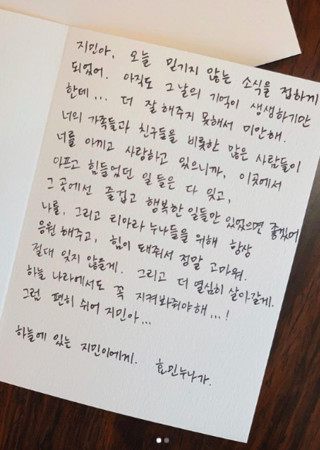 지민아, 오늘 믿기지 않는 소식을 접하게
되었어. 아직도 그날의 기억이 생생하기만
한데... 더 잘해주지 못해서 미안해.
너의 가족들과 친구들을 비롯한 많은 사람들이
너를 아끼고 사랑하고 있으니까, 이곳에서
아프고 힘들었던 일들은 다 잊고,
그 곳에선 즐겁고 행복한 일들만 있었으면 좋겠어
나를, 그리고 티아라 누나들을 위해 항상
응원해주고, 힘이 돼줘서 정말 고마워.
절대 잊지 않을게. 그리고 더 열심히 살아갈게.
하늘 나라에서도 꼭 지켜봐줘야해...!
그럼 편히 쉬어 지민아...
하늘에 있는 지민이에게. 효민누나가.